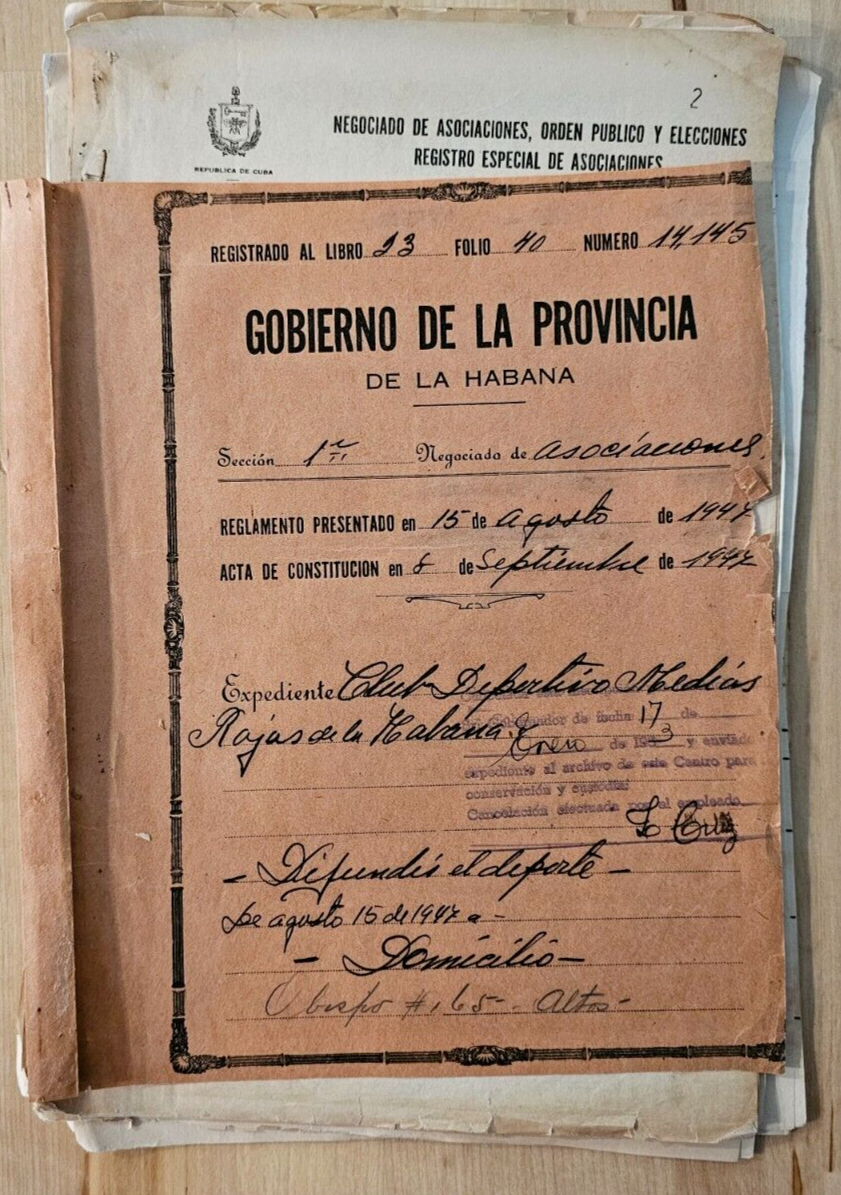 2
NEGOCIADO DE ASOCIACIONES, ORDEN PUBLICO Y ELECCIONES
REGISTRO ESPECIAL DE ASOCIACIONES
REPUBLICA DE CUBA
REGISTRADO AL LIBRO 23 FOLIO 40 NUMERO 14,145
GOBIERNO DE LA PROVINCIA
DE LA HABANA
Sección 1ª Negociado de asociaciones.
REGLAMENTO PRESENTADO en 15 de agosto de 1947
ACTA DE CONSTITUCION en 8 de Septiembre de 1947
Expediente Club Deportivo Medias
Rojas de la Habana.
de fecha 17 de
Enero de 1953 y enviado
expediente al archivo de este Centro para
conservación y custodia:
Cancelación efectuada por el empleado
Cruz
- Difundir el deporte -
De agosto 15 de 1947 a -
- Domicilio -
Obispo #, 65 - Altos -